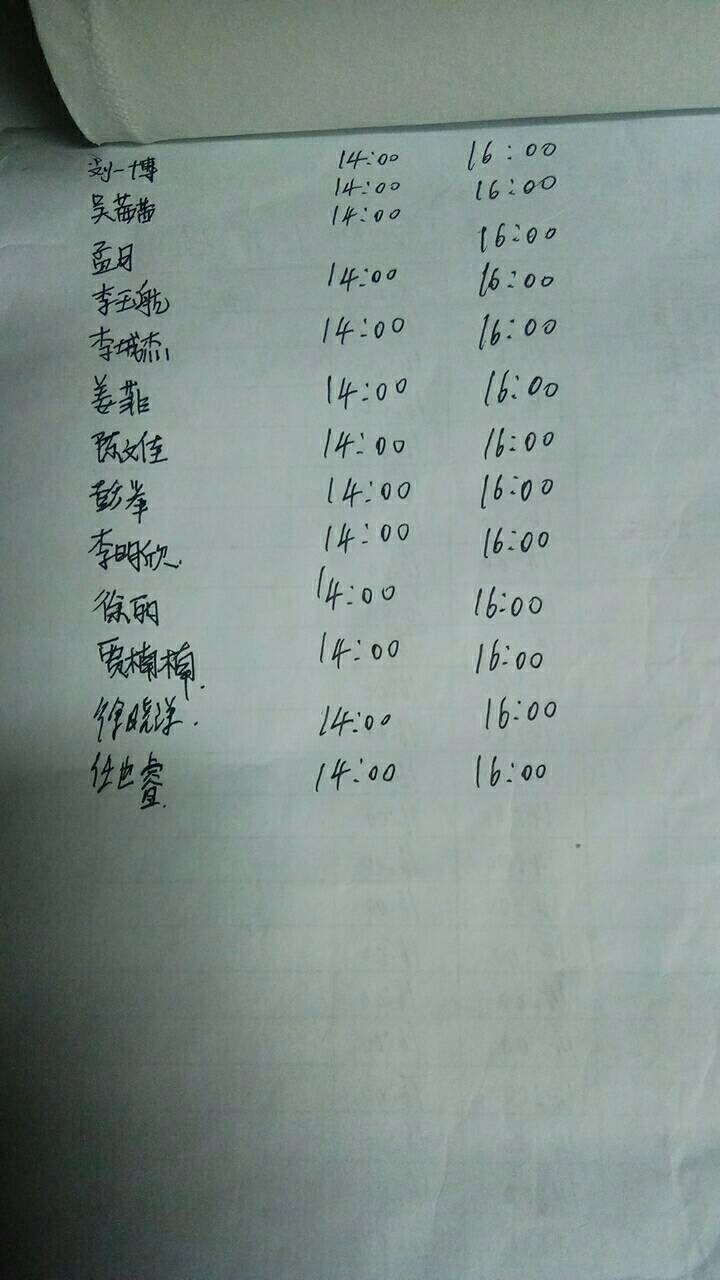 刘一博 14:00 16:00
吴茜茜 14:00 16:00
孟月 14:00 16:00
李玉航 14:00 16:00
李城杰 14:00 16:00
姜菲 14:00 16:00
陈文佳 14:00 16:00
彭举 14:00 16:00
李明欣 14:00 16:00
徐丽 14:00 16:00
贾楠楠 14:00 16:00
徐晓洋 14:00 16:00
任世睿 14:00 16:00